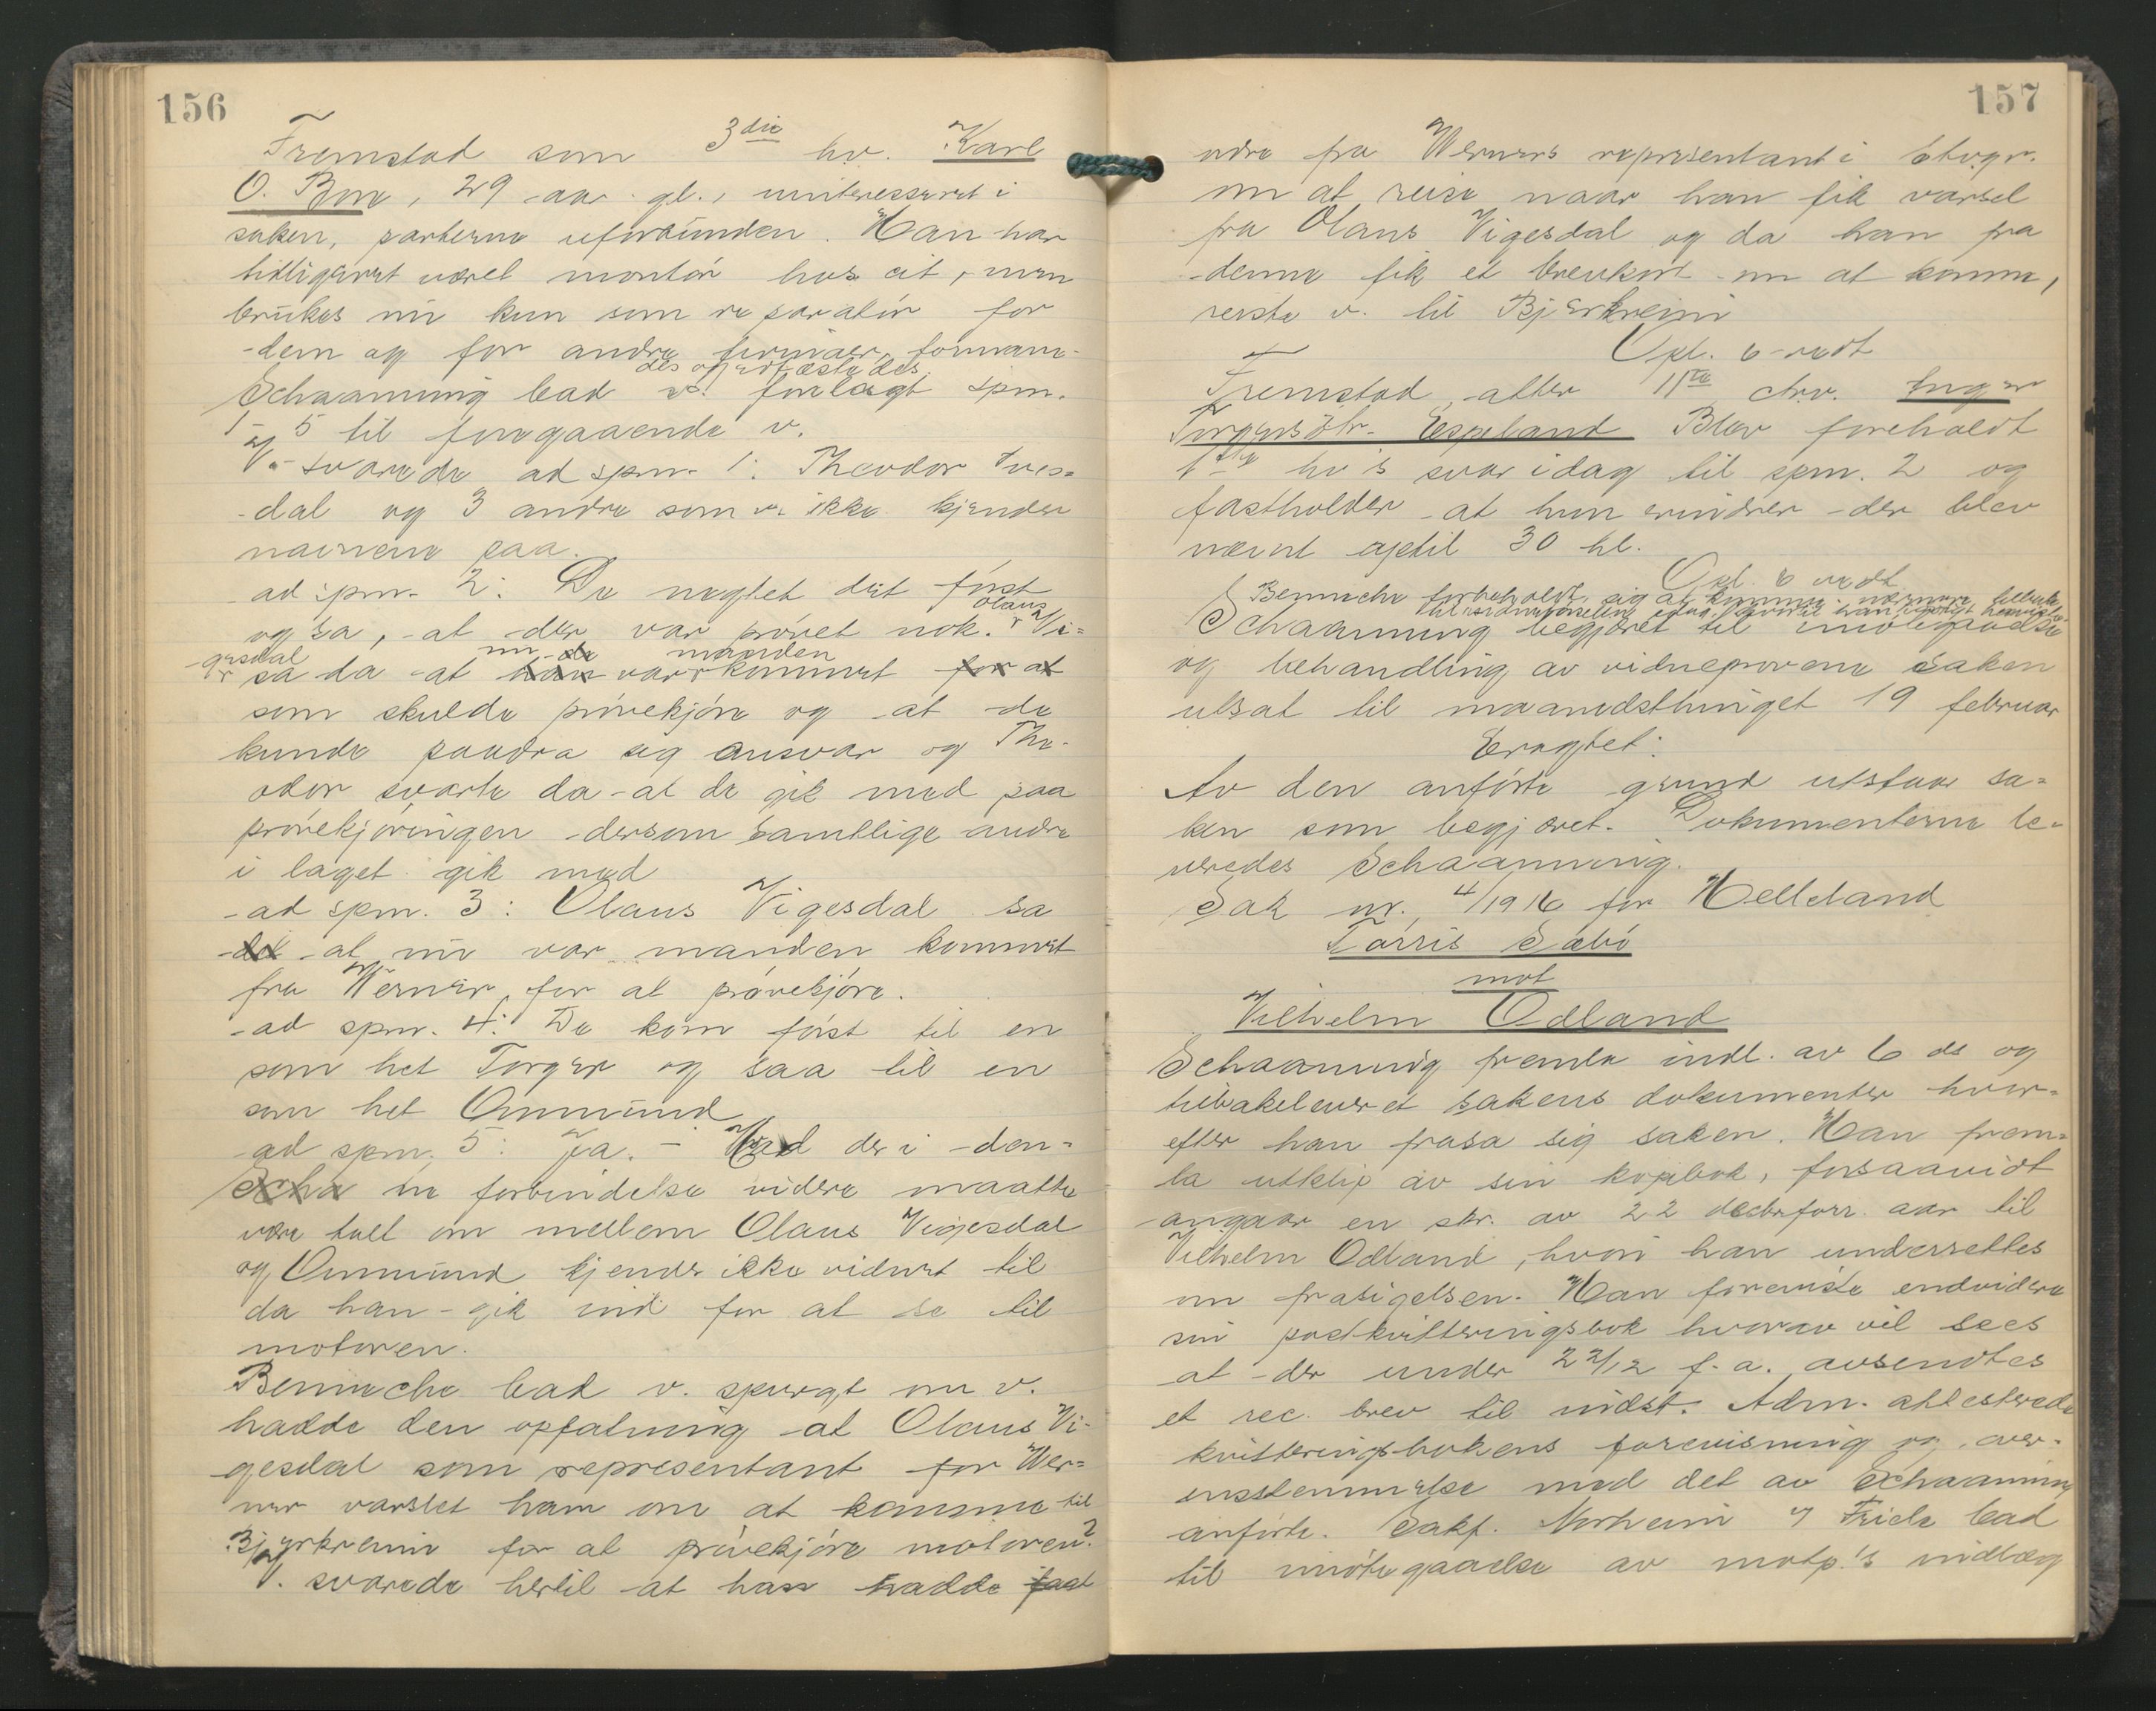 156
Fremstod som 3die hv. Karl
O. Bore, 29 aar gl., uinteressert i
saken, parterne uforbunden. Han har
tidligere været montör hos cit, men
brukes nu kun som reparatör for
dem og for andre firmaer, formane-
des og edfæstedes.
Schaanning bad v. forelagt spm.
1-5 til foregaaende v.
V. svarede ad spm. 1: Theodor Ives-
dal og 3 andre som v. ikke kjender
navnene paa.
ad spm. 2: De negtet det först
og sa, at der var prövet nok. Olaus Vi-
gesdal sa da at nu var manden kommet for at
som skulde prövekjöre og at de
kunde paadra sig ansvar og The-
odor svarte da at de gik med paa
prövekjöringen dersom samtlige andre
i laget gik med
ad spm. 3: Olaus Vigesdal sa
det at nu var manden kommet
fra Werner for at prövekjöre.
ad spm. 4: De kom först til en
som het Torger og saa til en
som het Ommund
ad spm. 5: Ja. - Hvad der i den-
Scha ne forbindelse videre maatte
være talt om mellem Olaus Vigesdal
og Ommund kjender ikke vidnet til
da han gik ind for at se til
motoren.
Benneche bad v. spurgt om v.
hadde den opfatning at Olaus Vi-
gesdal som representant for Wer-
ner varslet ham om at komme til
Bjerkreim for at prövekjöre motoren?
V. svarede hertil at han hadde faat
157
ordre fra Werners representant i Stvgr.
om at reise naar han fik varsel
fra Olaus Vigesdal og da han fra
denne fik et brevkort om at komme,
reiste v. til Bjerkreim
Opl. & vedt
Fremstod atter 11te chv. Inger
Torgersdtr. Espeland Blev foreholdt
1ste hv's svar idag til spm. 2 og
fastholder at hun erindrer der blev
nævnt optil 30 hl.
Opl. & vedt
Benneche forbeholdt sig at komme nærmere tilbake
til vidneförselen idag, hvortil han
Schaanning begjæret til imötegaaelse
og behandling av vidneprovene saken
utsat til maanedsthinget 19 februar
Eragtet:
Av den anförte grund utstaar sa-
ken som begjæret. Dokumenterne le-
veredes Schaanning.
Sak nr. 4/1916 for Helleland
Törris Sæbö
mot
Vilhelm Odland
Schaanning fremla indl. av 6 ds og
tilbakeleveret sakens dokumenter hvor-
efter han frasa sig saken. Han frem-
la utklip av sin kopibok, forsaavidt
angaar en skr. av 22 decbr forr. aar til
Vilhelm Odland, hvori han underrettes
om frasigelsen. Han foreviste endvidere
sin postkvitteringsbok hvorav vil sees
at der under 22/12 f. a. avsendtes
et rec. brev til indst. Adm. attesterede
kvitteringsbokens forevisning og over-
ensstemmelse med det av Schaanning
anförte. Sakf. Norheim v/ Feide bad
til imötegaaelse av motp.'s indlæg